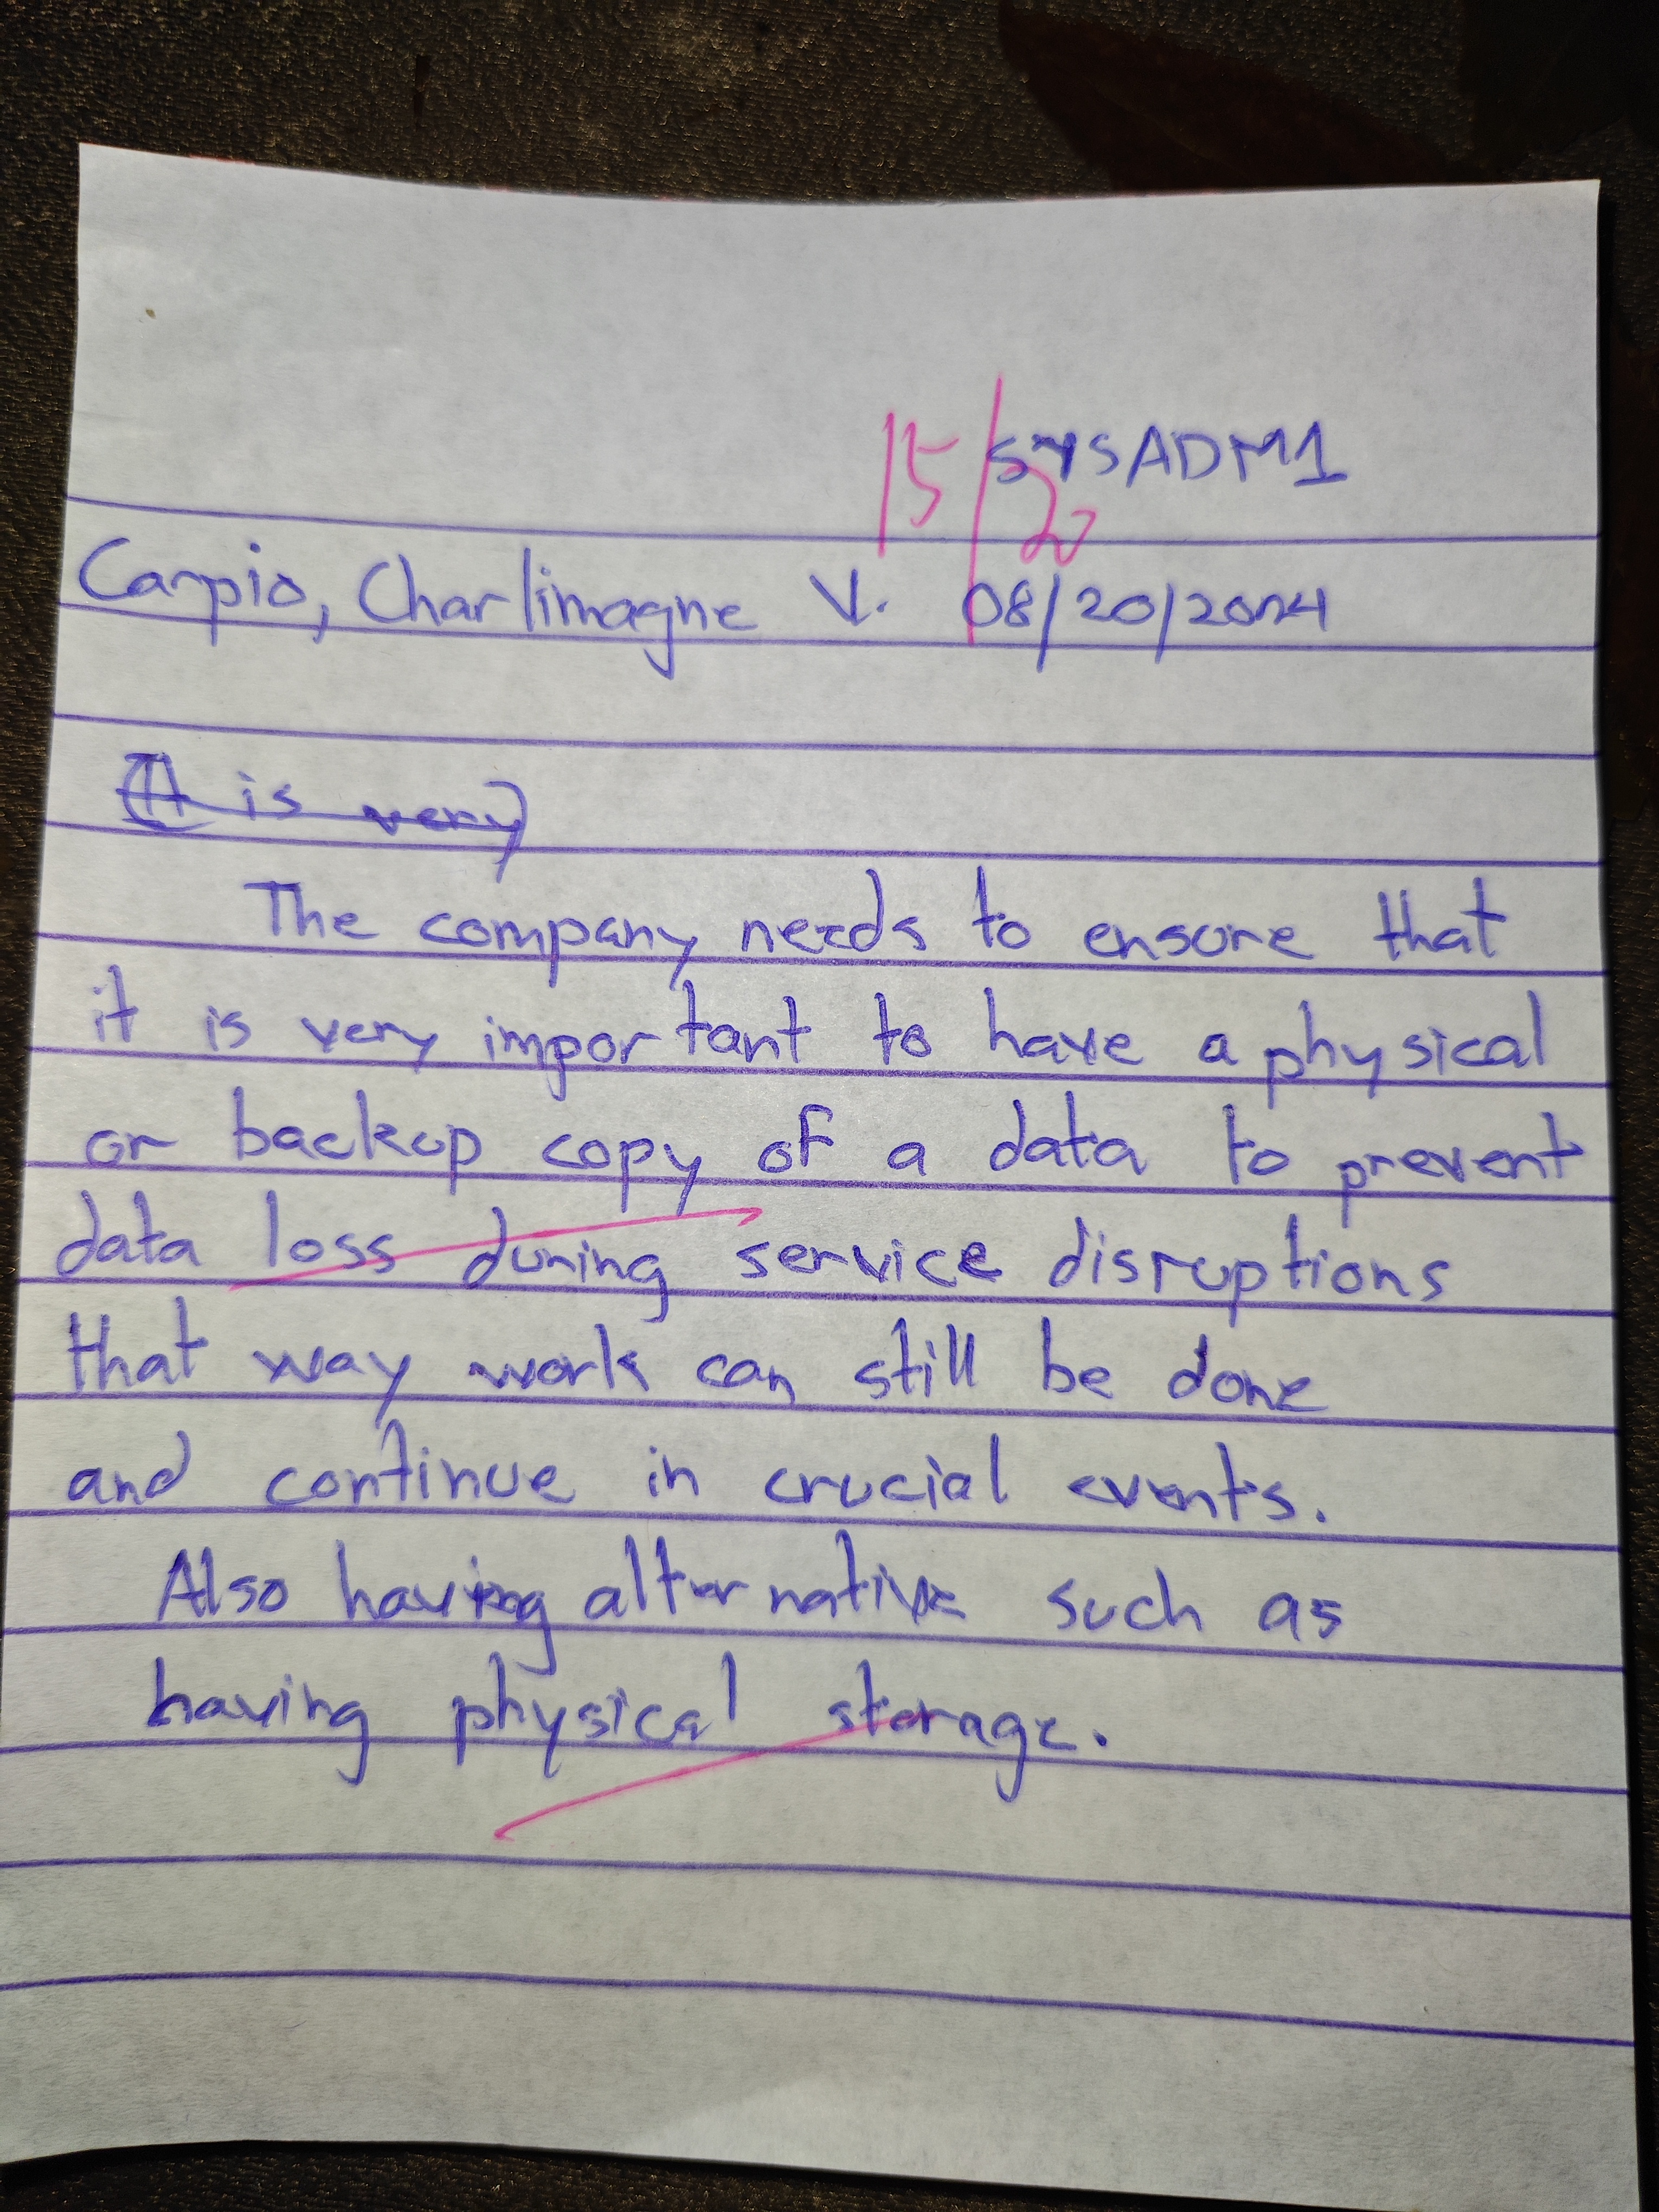 SYSADM1
15/20
Carpio, Charlimagne V. 08/20/2024
(It is very)
The company needs to ensure that
it is very important to have a physical
or backup copy of a data to prevent
data loss during service disruptions
that way work can still be done
and continue in crucial events.
Also having alternative such as
having physical storage.